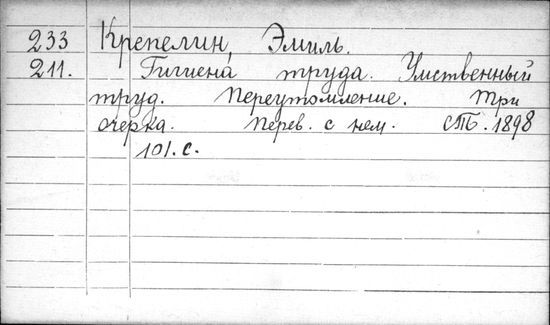 233 Крепелин, Эмиль.
211. Гигиена труда. Умственный
труд. Переутомление. Три
очерка. Перев. с нем. СПб. 1898
101. с.